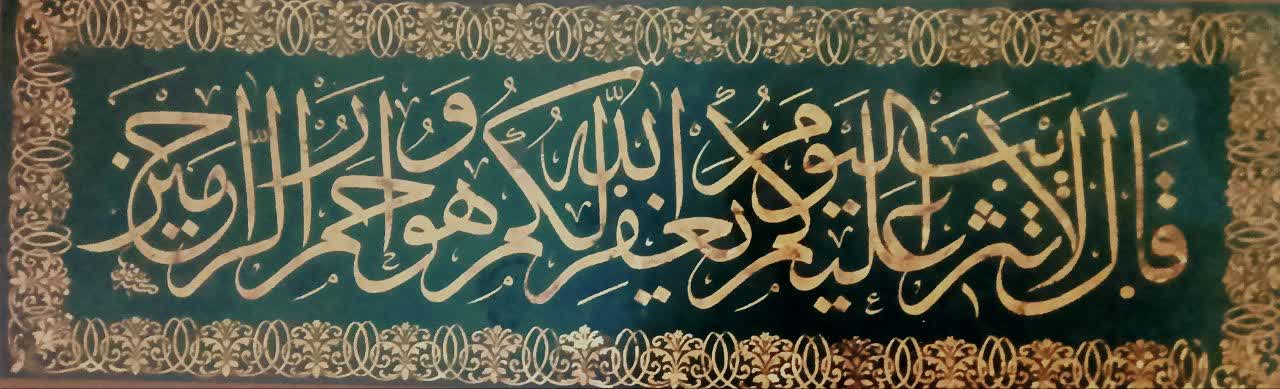 قَالَ لَا تَثْرِيبَ عَلَيْكُمُ الْيَوْمَ يَغْفِرُ اللَّهُ لَكُمْ وَهُوَ أَرْحَمُ الرَّاحِمِينَ